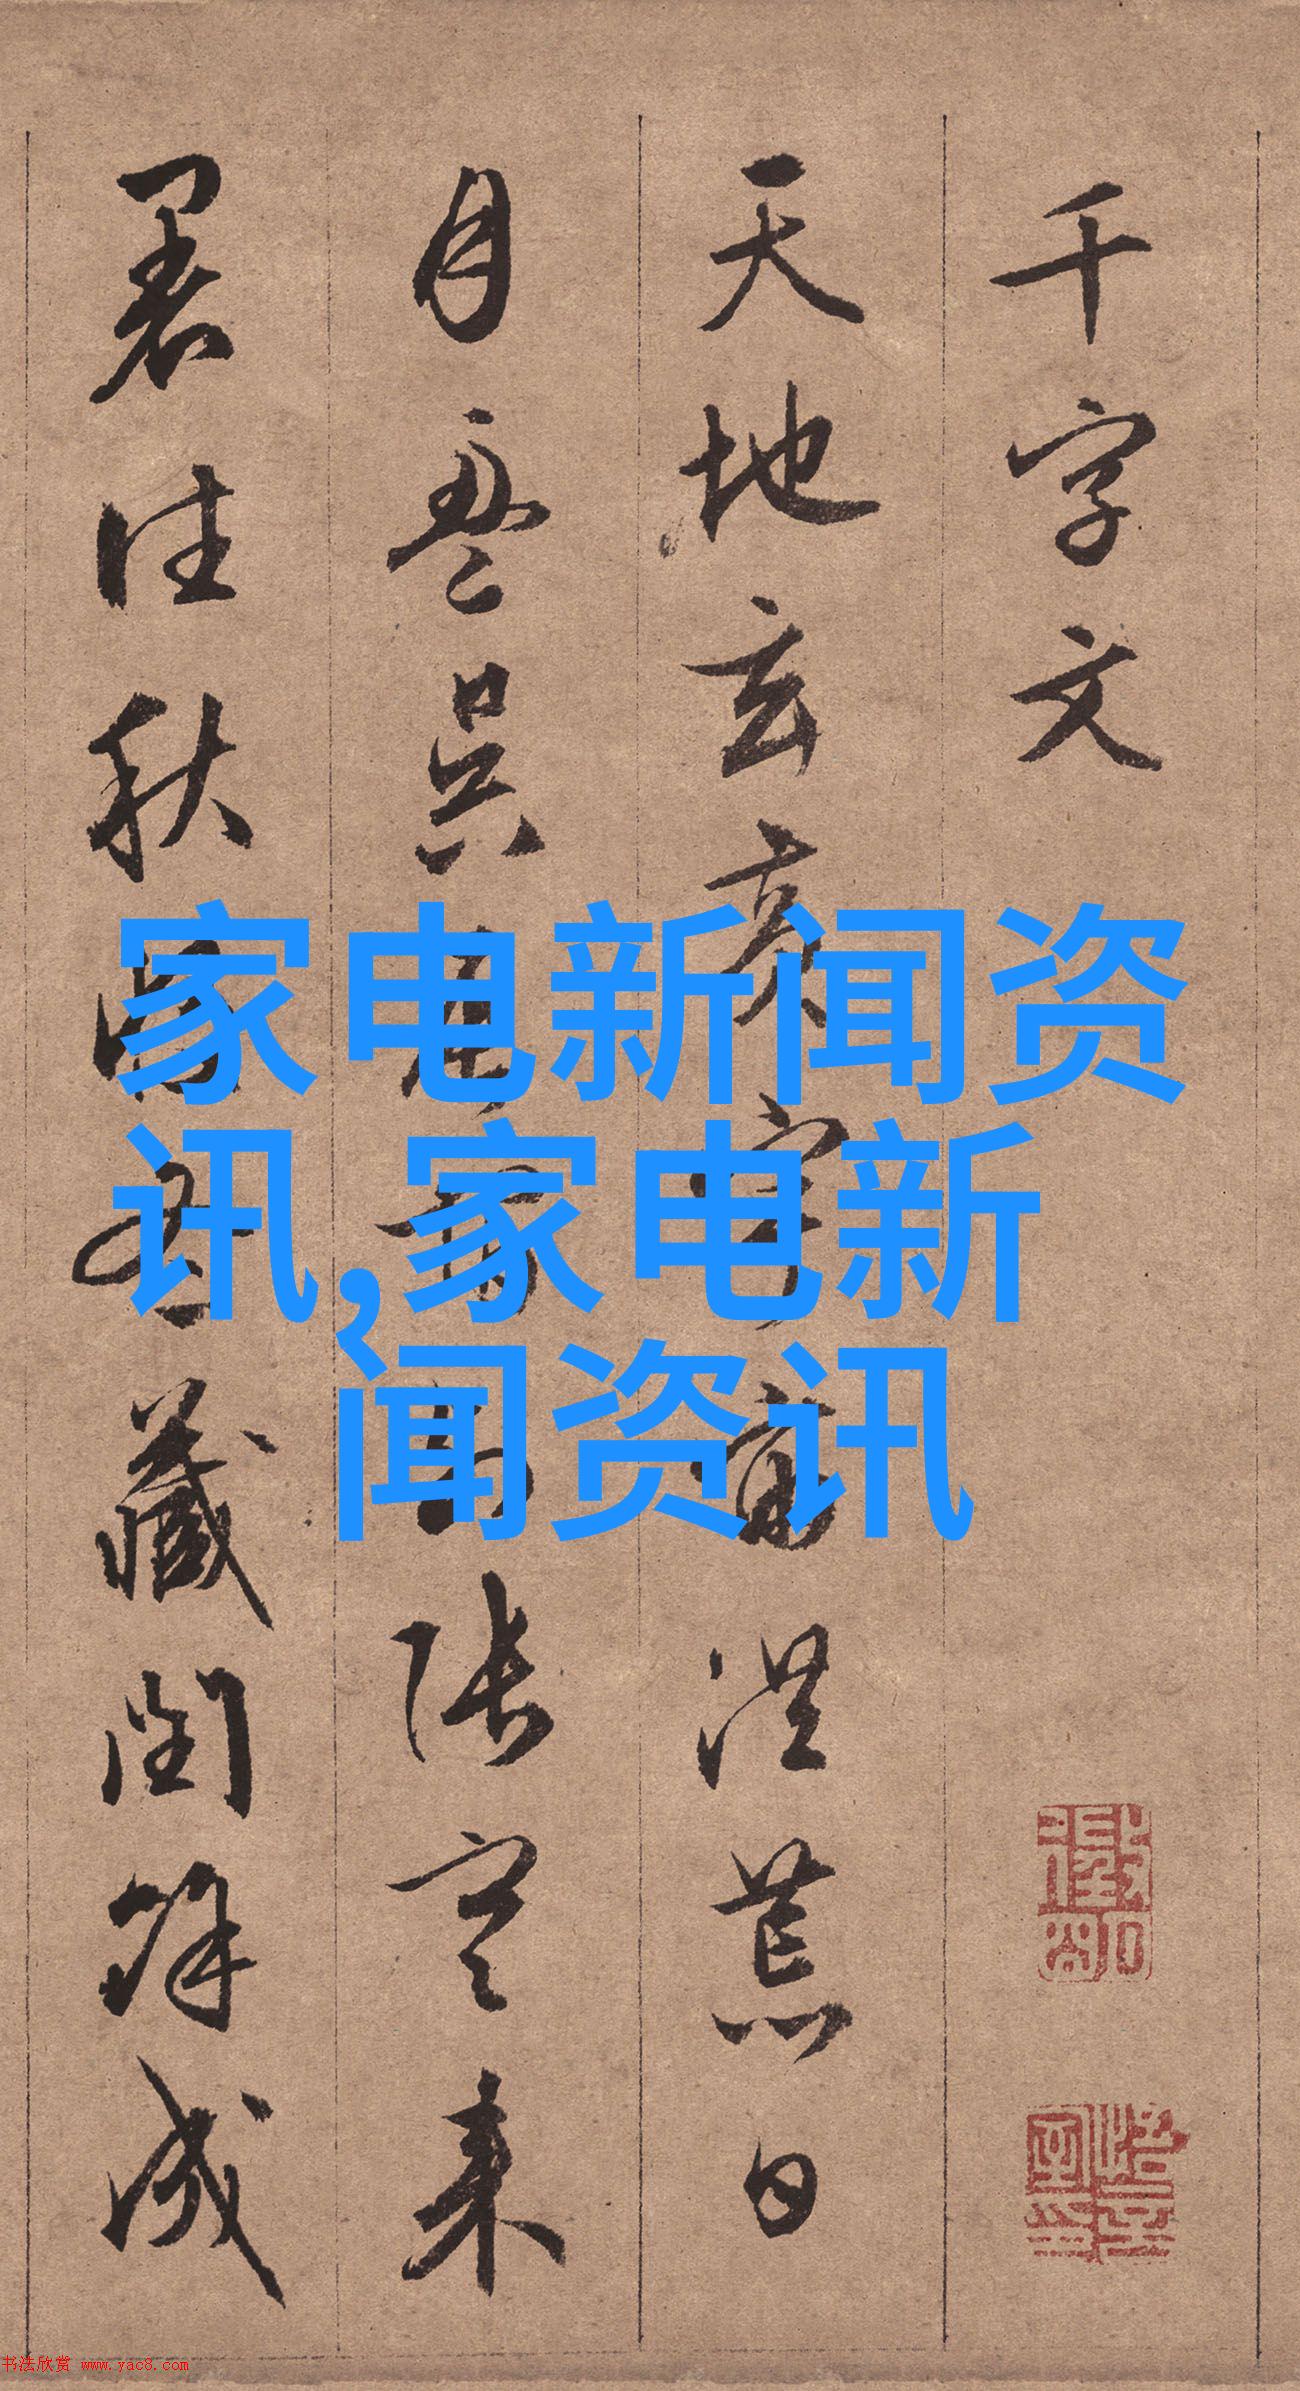 千字文
天地玄黄宇宙洪荒日
月盈昃辰宿列張寒来
暑往秋收冬藏閏餘成
家电新闻资
讯,家电新
闻资讯
书法欣赏 www.yac8.com